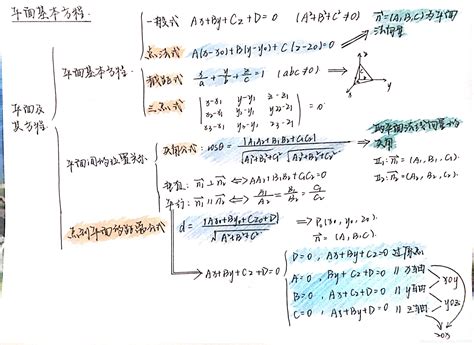 平面基本方程.
一般式 Ax+By+Cz+D=0 (A²+B²+C²≠0) n⃗=(A,B,C)为平面法向量
点法式 A(x-x0)+B(y-y0)+C(z-z0)=0
平面基本方程.
截距式 x/a+y/b+z/c=1 (abc≠0)
三点式 | x-x1 y-y1 z-z1 |
| x2-x1 y2-y1 z2-z1 | =0
| x3-x1 y3-y1 z3-z1 |
平面及其方程.
平面间的位置关系
夹角公式: cosθ= |A1A2+B1B2+C1C2| / √A1²+B1²+C1² √A2²+B2²+C2²
两平面法线向量的夹角
π1: n⃗1=(A1,B1,C1)
π2: n⃗2=(A2,B2,C2).
垂直: n⃗1⊥n⃗2 ⟺ A1A2+B1B2+C1C2=0
平行: n⃗1∥n⃗2 ⟺ A1/A2=B1/B2=C1/C2
点到平面的距离公式 d= |Ax0+By0+Cz0+D| / √A²+B²+C² ⟹ P0(x0,y0,z0).
n⃗=(A,B,C).
Ax+By+Cz+D=0
D=0, Ax+By+Cz=0 过原点
A=0, By+Cz+D=0 ∥x轴
B=0, Ax+Cz+D=0 ∥y轴
C=0, Ax+By+D=0 ∥z轴
xoy
yoz
xoz